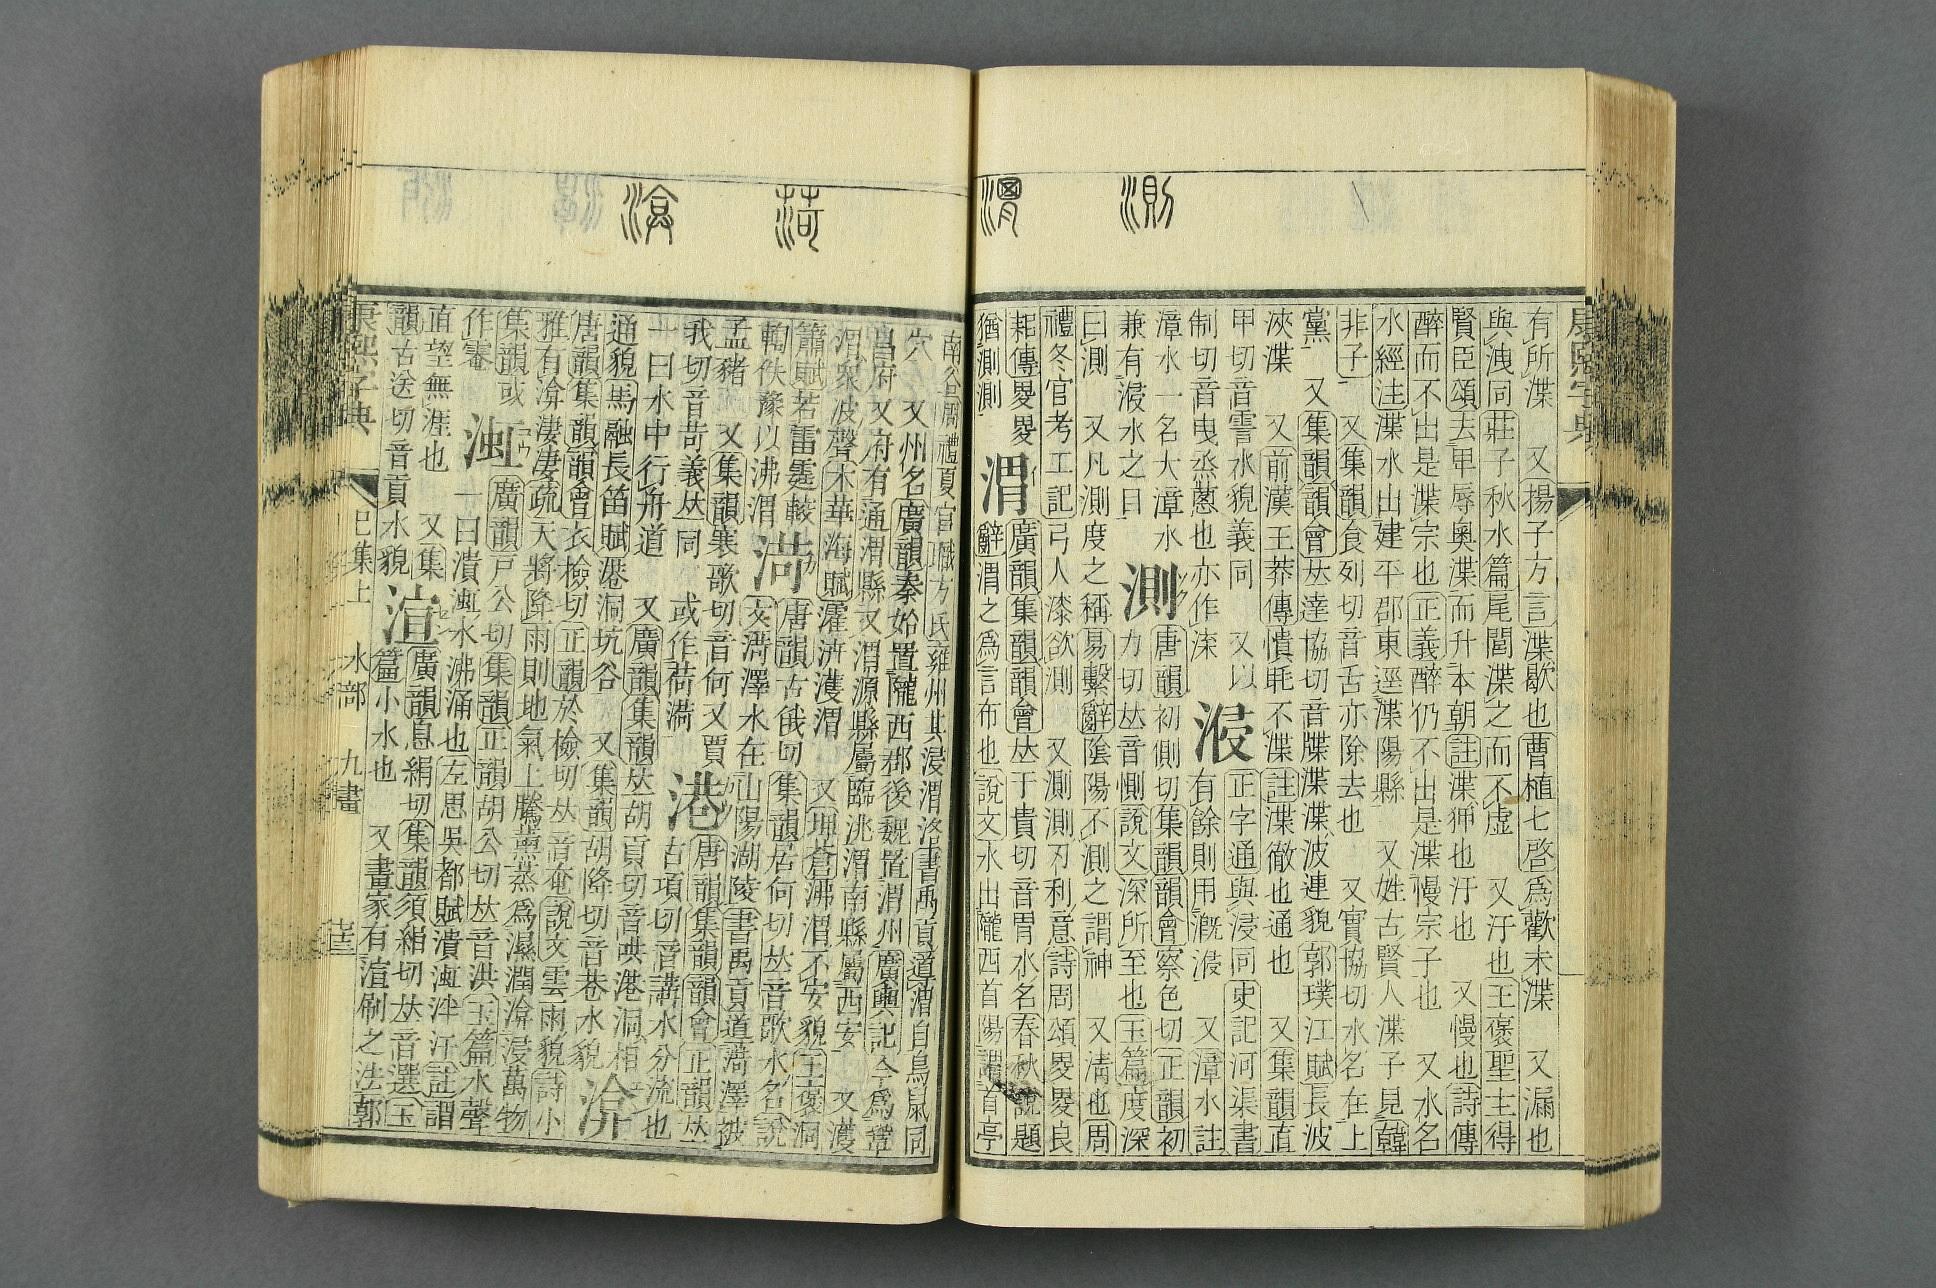 測
渭
菏
渰
康熙字典
有所渫　又揚子方言渫歇也曹植七啓爲歡未渫　又漏也
與洩同莊子秋水篇尾閭渫之而不虛　又汙也王褒聖主得
賢臣頌去卑辱奧渫而升本朝註渫狎也汙也　又慢也詩傳
醉而不出是渫宗也正義醉仍不出是渫慢宗子也　又水名
水經注渫水出建平郡東逕渫陽縣　又姓古賢人渫子見韓
非子　又集韻食列切音舌亦除去也　又實協切水名在上
黨　又集韻韻會𠀤達協切音牒渫渫波連貌郭璞江賦長波
浹渫　又前漢王莽傳憒眊不渫註渫徹也通也　又集韻直
甲切音霅水貌義同　又以
制切音曳烝蔥也亦作㳿　㴆有餘則用漑㴆　又漳水註
正字通與浸同史記河渠書
漳水一名大漳水
兼有浸水之目　測唐韻初側切集韻韻會察色切正韻初
力切𠀤音惻說文深所至也玉篇度深
曰測　又凡測度之稱易繫辭隂陽不測之謂神　又淸也周
禮冬官考工記弓人漆欲測　又測測刃利意詩周頌畟畟良
耜傳畟畟
猶測測　渭廣韻集韻韻會𠀤于貴切音胃水名春秋說題
辭渭之爲言布也說文水出隴西首陽謂首亭
南谷周禮夏官職方氏雍州其浸渭洛書禹貢導渭自鳥鼠同
穴　又州名廣韻秦始置隴西郡後魏置渭州廣輿記今爲鞏
昌府　又府有通渭縣又渭源縣屬臨洮渭南縣屬西安　又
渭衆波聲木華海賦㶖泋濩渭　又埤蒼沸渭不安貌王褒洞
簫賦若雷霆輘
輷佚豫以沸渭　菏唐韻古俄切集韻居何切𠀤音歌水名說
文菏澤水在山陽湖陵書禹貢道菏澤被
孟豬　又集韻寒歌切音何又賈
我切音苛義𠀤同　或作荷渮　港唐韻集韻韻會正韻𠀤
古項切音講水分流也
一曰水中行舟道　又廣韻集韻𠀤胡貢切音哄港洞相
通貌馬融長笛賦港洞坑谷　又集韻胡降切音巷水貌　渰
唐韻集韻韻會衣檢切正韻於檢切𠀤音奄說文雲雨貌詩小
雅有渰淒淒疏天將降雨則地氣上騰薰蒸爲濕潤渰浸萬物
集韻或
作霮　渱廣韻戸公切集韻正韻胡公切𠀤音洪玉篇水聲
一曰潰渱水沸涌也左思吳都賦潰渱泮汗註謂
直望無涯也　又集
韻古送切音貢水貌　渲廣韻息絹切集韻須絹切𠀤音選玉
篇小水也　又畫家有渲刷之法郭
康熙字典　巳集上　水部　九畫